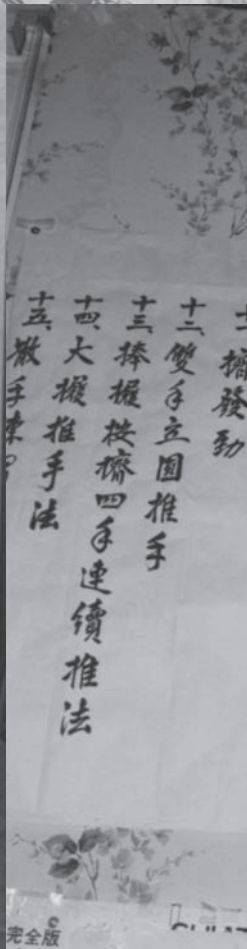 擠發勁
十二、雙手立圓推手
十三、捧握按擠四手連續推法
十四、大握推手法
十五、散手
完全版